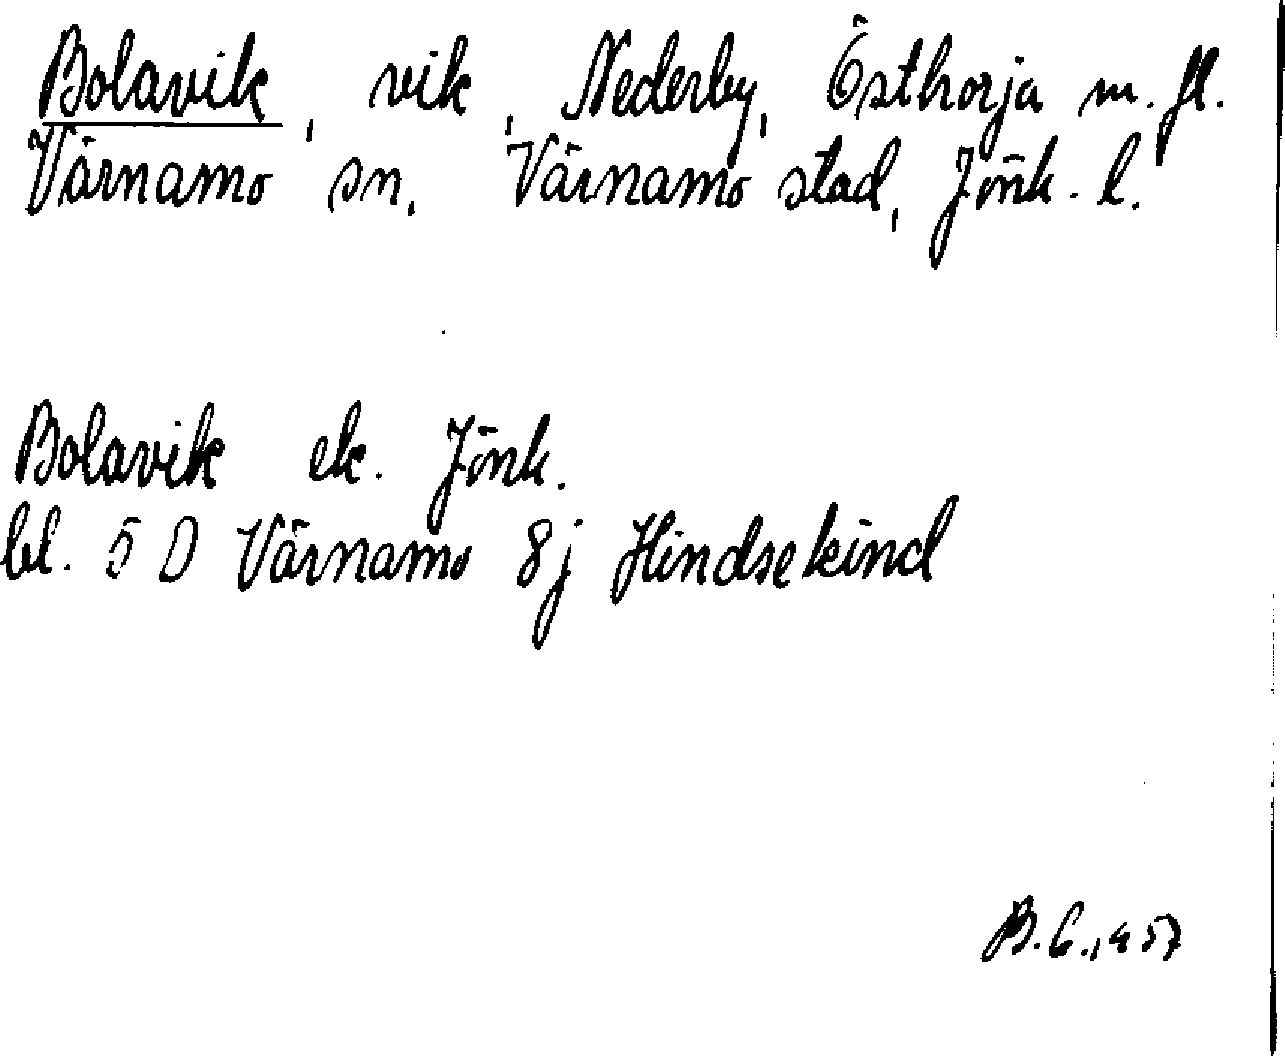 Bolavik, vik, Nederby, Östhorja m. fl.
Värnamo sn. Värnamo stad, Jönk. l.
Bolavik ek. Jönk.
bl. 5 D Värnamo 8j Hindsekind
B. G. 1957